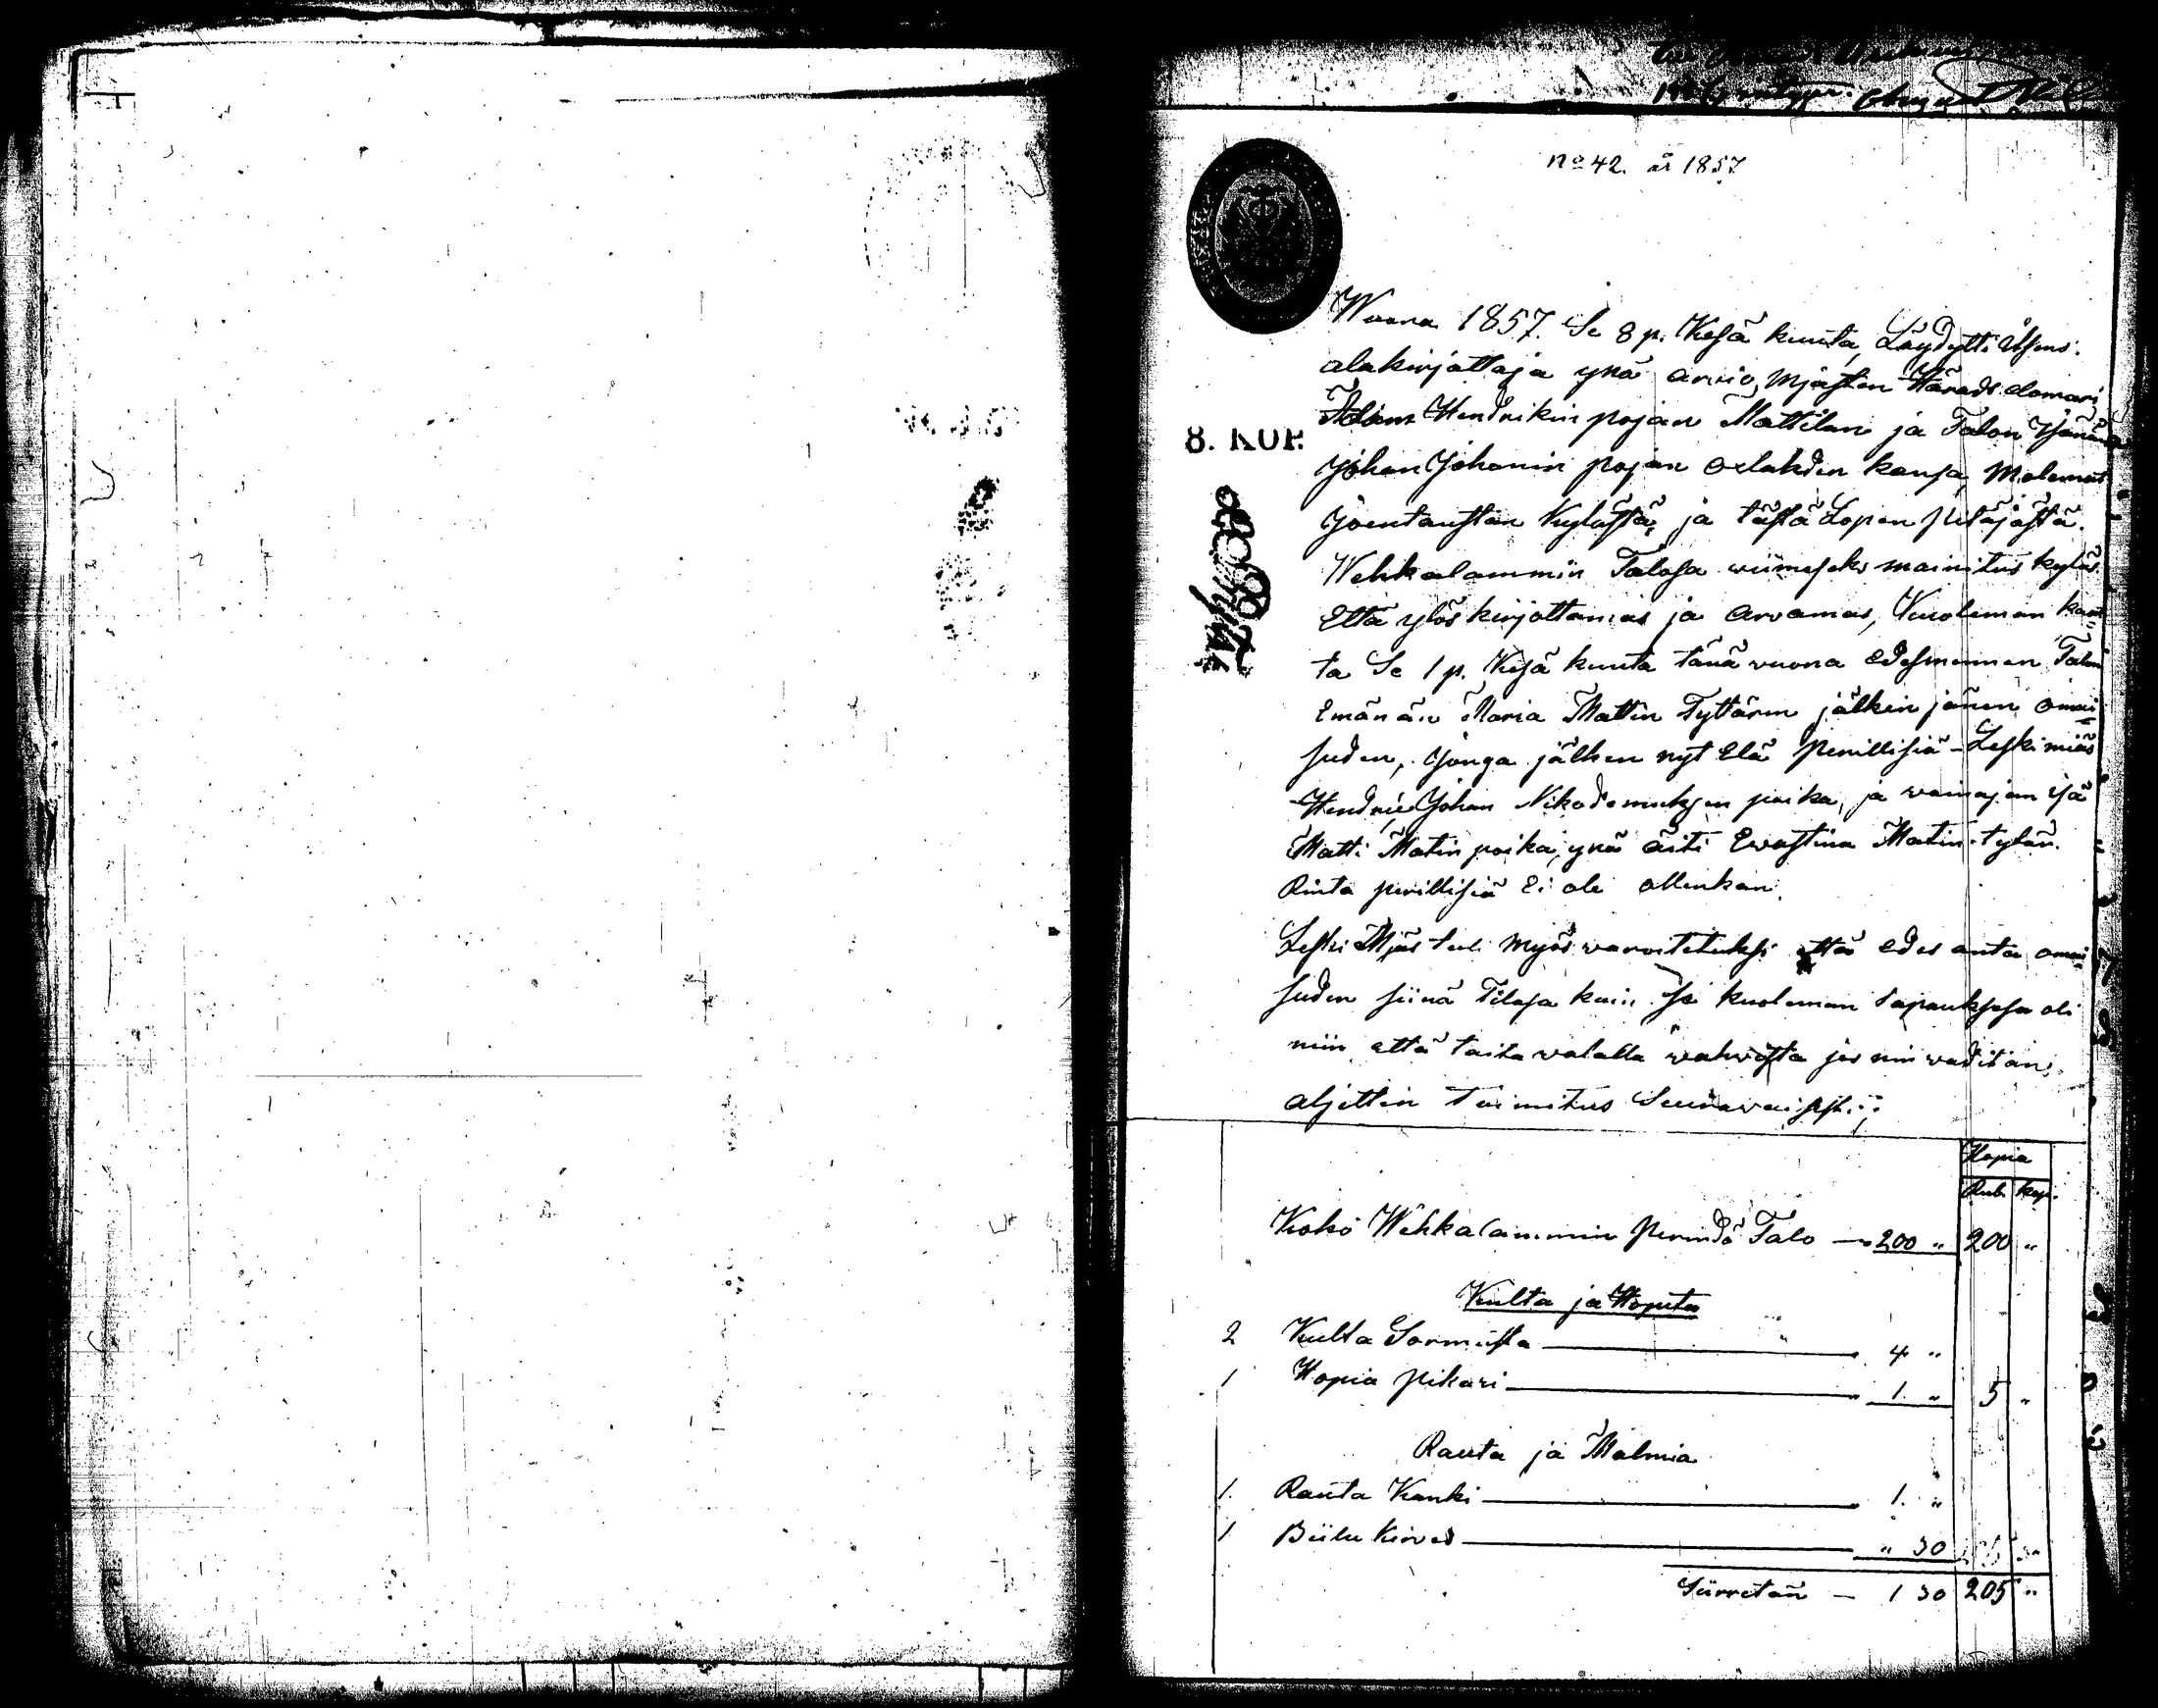 No 42. år 1857
8. KOP.
Wuona 1857. Se 8 p. Kesä kuuta, Löydytti itsens.
alakirjattaja ynä arvio Mjästen Härads domari
Adam Hendrikin pojan Mattilan ja Talon Isännän
Johan Johanin pojan Ojlahden kansa, Molemat
Joentaustan Kylästä, ja tästä Lopen pitäjästä.
Wehkalammin Talosa wiimeseks mainitus kyläs.
Että ylös kirjottamas ja arvamas, Kuoleman kaut
ta Se 1 p. Kesä kuuta tänä vuona edesmennen Talon
Emänän Maria Mattin Tyttären jälkin jänen omai
suden, Jonga jälken nyt Elä perillisiä – Leski mies
Hendric Johan Nikodemuksen poika, ja wainajan isä
Matti Matin poika, ynä äiti Ewastina Matin tytär.
Rinta perillisiä Ei ole ollenkan.
Leski Mjäs tuli Myös waroitetuksi että edes anta omai
suden siinä Tilasa kuin se kuoleman tapauksesa oli
niin että taita walalla wahwista jos nin waditan,
aljettin toimitus Seuravaisest.;
Hopia
Rub. kop.
Koko Wehkalammin perindö Talo — 200 " 200 "
Kulta ja Hopita
2 Kulta Sormusta — 4 "
1 Hopia pikari — " 1. " 5 "
Rauta ja Malmia
1. Rauta Kanki — 1. "
1 Biilu kirves — " 30
Siirretän — 1 30 205 "